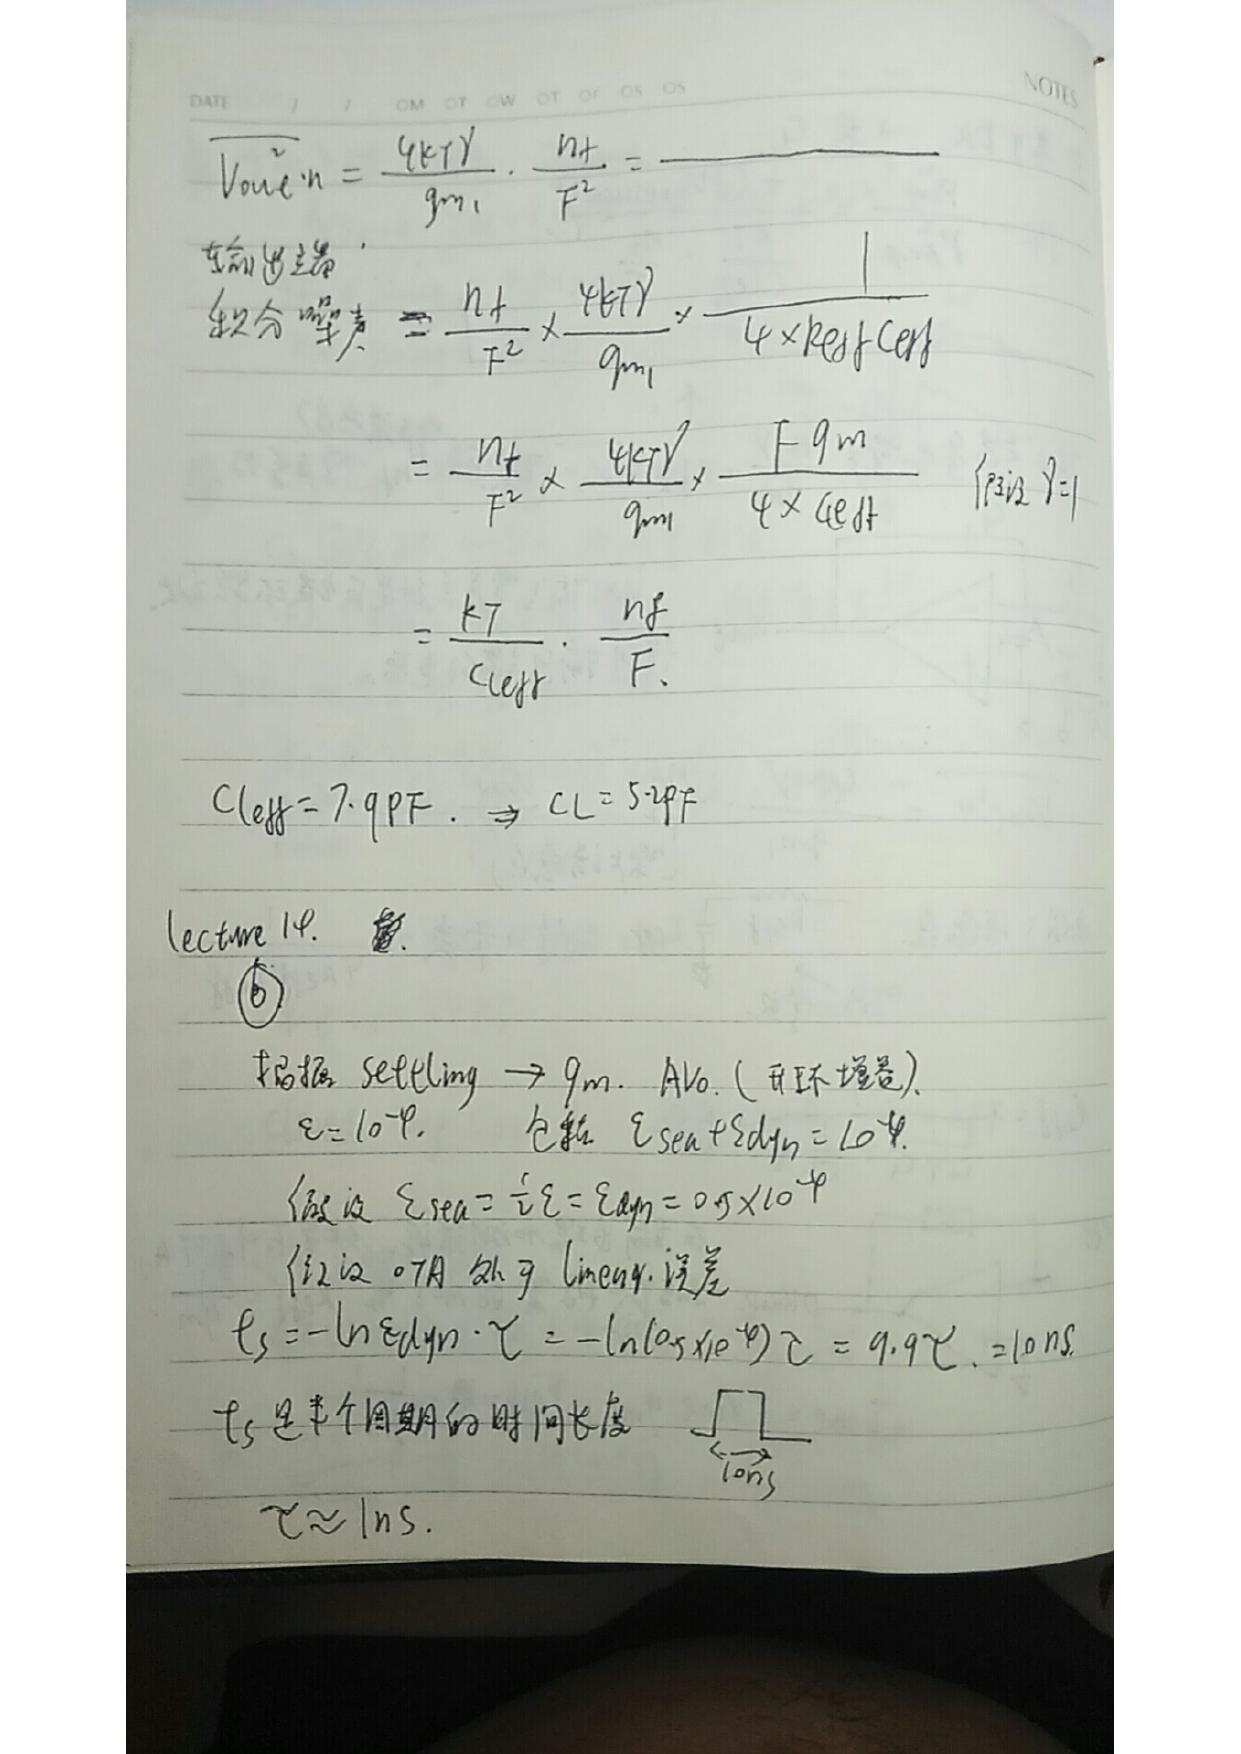 DATE / / OM OT OW OT OF OS OS
NOTES
Vout·n² = 4kTγ/gm1 · nf/F² = ——
输出端
积分噪声 = nf/F² × 4kTγ/gm1 × 1/(4×Reff Ceff)
= nf/F² × 4kTγ/gm1 × F gm/(4×CLeff) 假设 γ=1
= kT/CLeff · nf/F.
CLeff = 7.9PF. ⇒ CL = 5.2PF
lecture 14.
⑥
根据 settling → gm. AVo. (开环增益).
ε=10⁻⁴. 包括 εsta+εdyn=10⁻⁴.
假设 εsta = ½ε = εdyn = 0.5×10⁻⁴
假设 OTA 处于 linear. 误差
ts = -ln εdyn · τ = -ln(0.5×10⁻⁴) τ = 9.9τ. = 10ns.
ts 是半个周期的时间长度
10ns
τ ≈ 1ns.